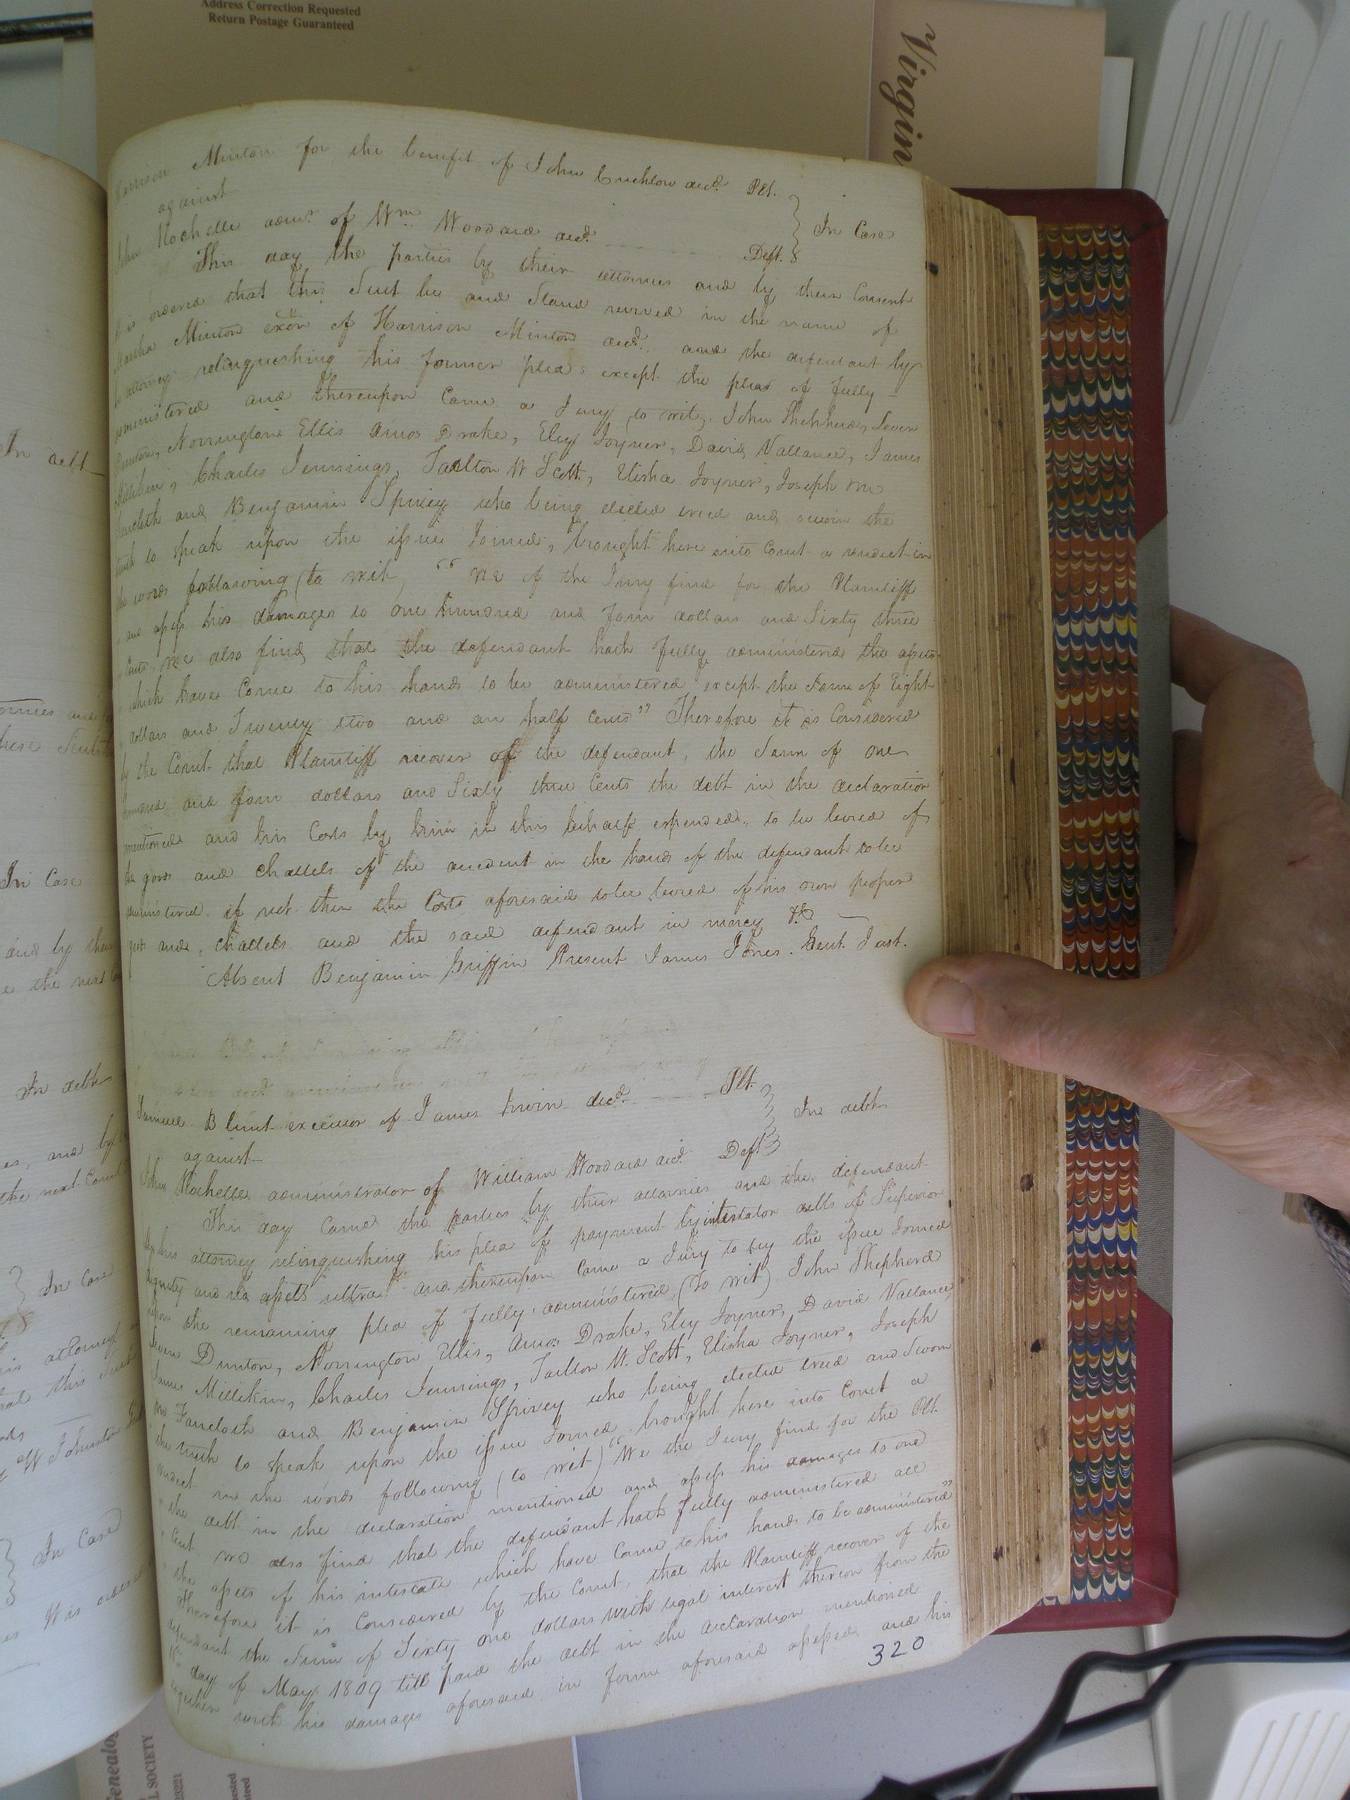 Address Correction Requested
Return Postage Guaranteed
Virgin
Harrison Minton for the benefit of John Cucklow decd. Plt.
against
In Case
John Rochelle admr. of Wm. Woodard decd. Deft.
This day the parties by their attornies and by their Consent
it is ordered that this Suit be and Stand revived in the name of
Martha Minton exōn of Harrison Minton decd. and the defendant by
his attorney relinquishing his former pleas except the plea of fully
administered and thereupon Came a Jury (to wit) John Shepherd, Seven
Dunton, Norrington Ellis Amos Drake, Eley Joyner, David Vallance, James
Milliken, Charles Jennings, Tarlton W Scott, Elisha Joyner, Joseph
Faircloth and Benjamin Spivey who being elected tried and sworn the
truth to speak upon the issue Joined, brought here into Court a verdict in
the words following (to wit) " We of the Jury find for the Plaintiff
and assess his damages to one hundred and four dollars and Sixty three
Cents we also find that the defendant hath fully administered the assets
which have Come to his hands to be administered except the Sum of Eight
dollars and Twenty two and an half Cents" Therefore it is Considered
by the Court that Plaintiff recover of the defendant, the Sum of one
hundred and four dollars and Sixty three Cents the debt in the declaration
mentioned and his Costs by him in this behalf expended, to be levied of
the goods and Chattels of the decedent in the hands of the defendant to be
administered if not then the Costs aforesaid to be levied of his own proper
goods and Chattels and the said defendant in mercy &c
Absent Benjamin Griffin Present James Jones. Gent. Just.
Samuel Blunt executor of James Irwin decd. Plt.
In debt
against
John Rochelle administrator of William Woodard decd. Deft
This day Came the parties by their attornies and the defendant
by his attorney relinquishing his plea of payment by intestator debts of Superior
dignity and no assets ultra and thereupon Came a Jury to try the issue Joined
upon the remaining plea of fully administered (to wit) John Shepherd
Seven Dunton, Norrington Ellis, Amos Drake, Eley Joyner, David Vallance
James Milliken, Charles Jennings, Tarlton W. Scott, Elisha Joyner, Joseph
Faircloth and Benjamin Spivey who being elected tried and Sworn
the truth to speak upon the issue Joined, brought here into Court a
verdict in the words following (to wit) "We the Jury find for the Plt.
the debt in the declaration mentioned and assess his damages to one
Cent we also find that the defendant hath fully administered all
the assets of his intestate which have Come to his hands to be administered"
Therefore it is Considered by the Court, that the Plaintiff recover of the
defendant the Sum of Sixty one dollars with legal interest thereon from the
day of May 1809 till paid the debt in the declaration mentioned
together with his damages aforesaid in form aforesaid assessed and his
320
In debt
In Case
and by their
the next
In debt
and by
the next Court
In Case
his attorney
that this Suit
W Johnston
In Case
It is ordered
Genealog
L SOCIETY